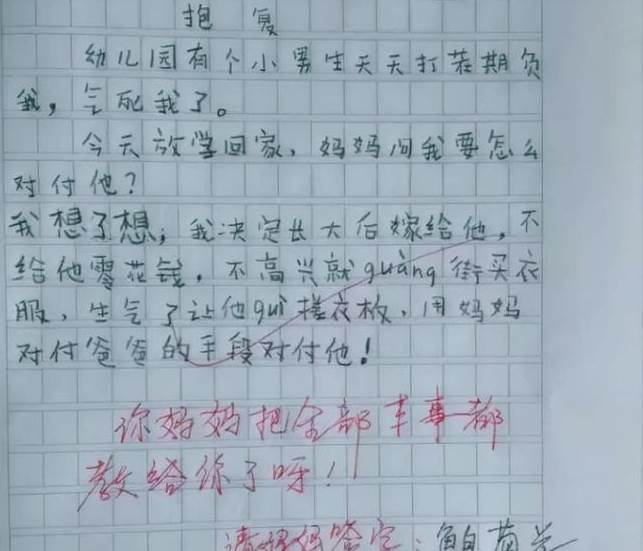 抱 复
幼儿园有个小男生天天打茬期负
我，气死我了。
今天放学回家，妈妈问我要怎么
对付他？
我想了想，我决定长大后嫁给他，不
给他零花钱，不高兴就guàng街买衣
服，生气了让他guì搓衣板，用妈妈
对付爸爸的手段对付他！
你妈妈把全部本事都
教给你了呀！！
请妈妈签字：